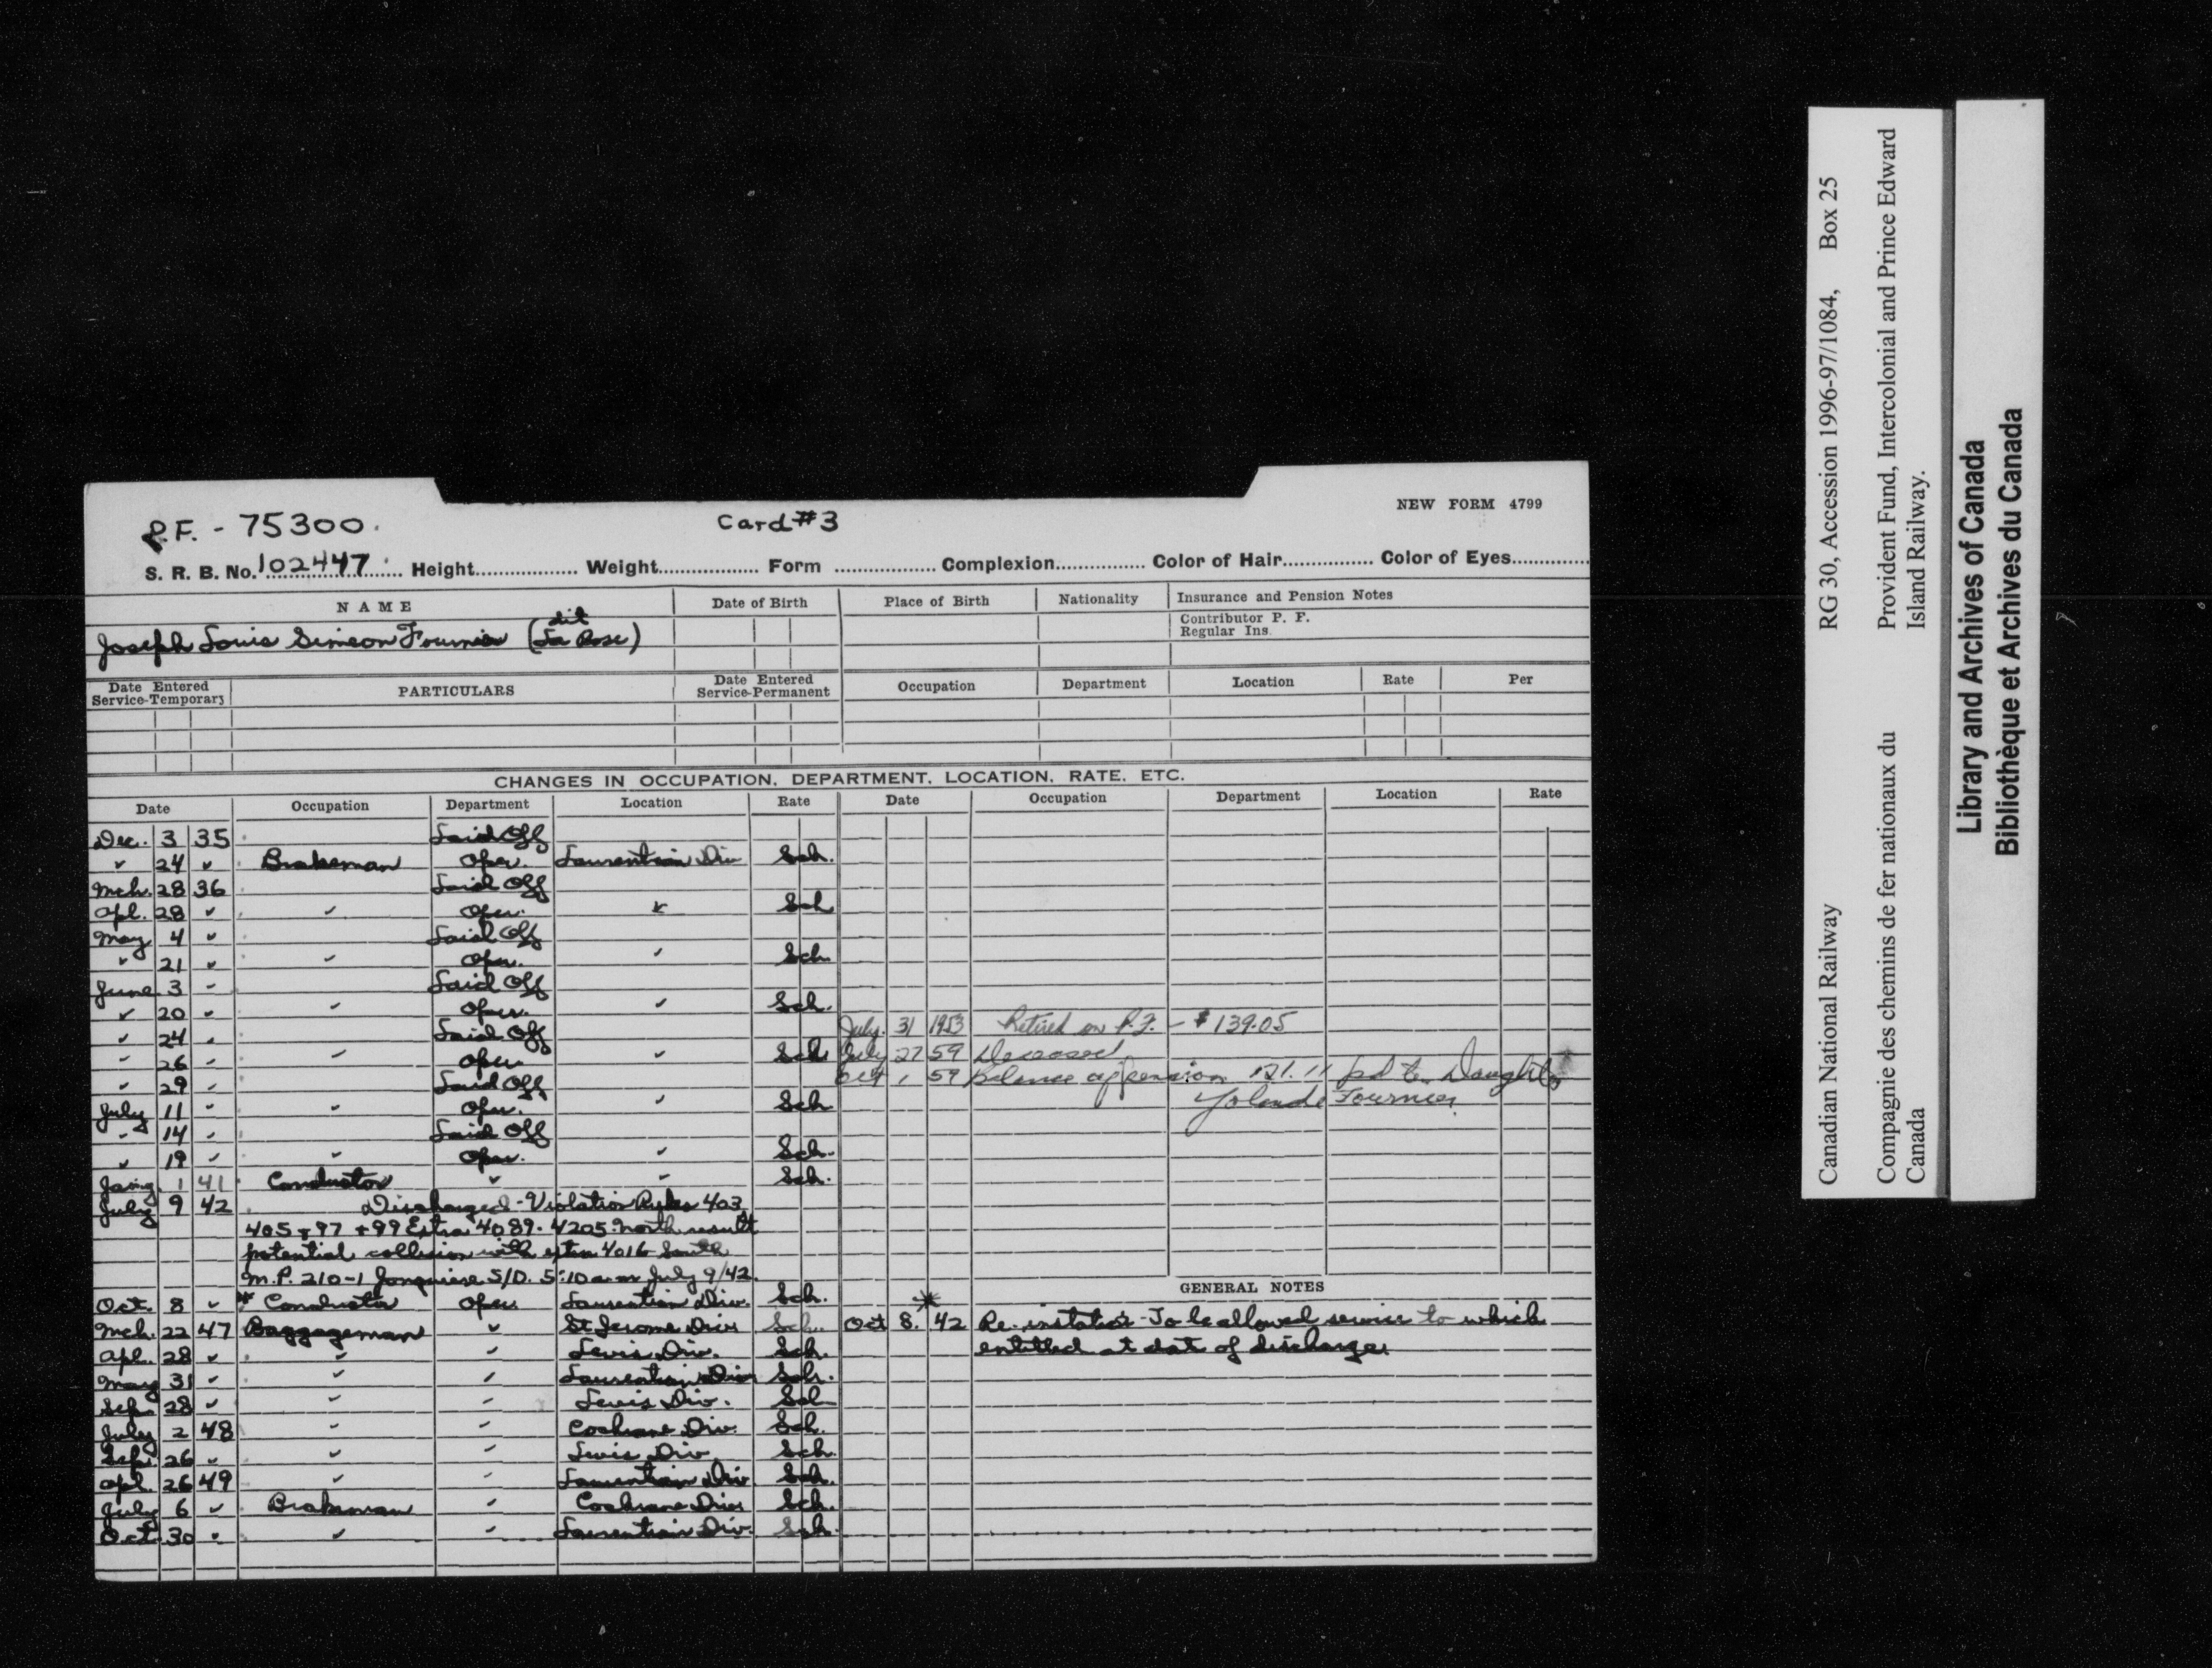 P.F. - 75300.
Card #3
NEW FORM 4799
S. R. B. No. 102447 Height Weight Form Complexion Color of Hair Color of Eyes
NAME Date of Birth Place of Birth Nationality Insurance and Pension Notes
Contributor P. F.
Regular Ins.
Joseph Louis Simeon Fournier (dit La Rose)
Date Entered Service-Temporary PARTICULARS Date Entered Service-Permanent Occupation Department Location Rate Per
CHANGES IN OCCUPATION, DEPARTMENT, LOCATION, RATE, ETC.
Date Occupation Department Location Rate Date Occupation Department Location Rate
Dec. 3 35 Laid Off
✓ 24 ✓ Brakeman Oper. Laurentian Div Sch.
Mch. 28 36 Laid Off
Apl. 28 ✓ ✓ Oper. ✓ Sch
May 4 ✓ Laid Off
✓ 21 ✓ ✓ Oper. ✓ Sch
June 3 ✓ Laid Off
✓ 20 ✓ ✓ Oper. ✓ Sch.
✓ 24 ✓ Laid Off
✓ 26 ✓ ✓ Oper ✓ Sch
✓ 29 ✓ Laid Off
July 11 ✓ ✓ Oper. ✓ Sch
✓ 14 ✓ Laid Off
✓ 19 ✓ ✓ Oper. ✓ Sch.
Jany. 1 41 Conductor ✓ ✓ Sch.
July 9 42 Discharged - Violation Rules 403
405 + 97 + 99 Extra 4089 - 4205 North result
potential collision with extra 4016 South
M.P. 210-1 Jonquiere S/D. 5:10 a.m July 9/42.
Oct. 8 ✓ * Conductor Oper Laurentian Div. Sch.
Mch. 22 47 Baggageman ✓ St Jerome Div Sch.
Apl. 28 ✓ ✓ ✓ Levis Div. Sch.
May 31 ✓ ✓ ✓ Laurentian Div Sch.
Sep. 28 ✓ ✓ ✓ Levis Div. Sch
July 2 48 ✓ ✓ Cochrane Div. Sch.
Sep. 26 ✓ ✓ ✓ Levis Div Sch.
Apl. 26 49 ✓ ✓ Laurentian Div Sch.
July 6 ✓ Brakeman ✓ Cochrane Div Sch.
Oct 30 ✓ ✓ ✓ Laurentian Div. Sch.
July. 31 1953 Retired on P.F. - $139.05
July 27 59 Deceased
Oct 1 59 Balance of pension 121.11 pd to Daughter
Yolande Fournier
GENERAL NOTES
*
Oct 8. 42 Re-instated - To be allowed service to which
entitled at date of discharge.
Canadian National Railway RG 30, Accession 1996-97/1084, Box 25
Compagnie des chemins de fer nationaux du Canada
Provident Fund, Intercolonial and Prince Edward Island Railway.
Library and Archives of Canada
Bibliothèque et Archives du Canada